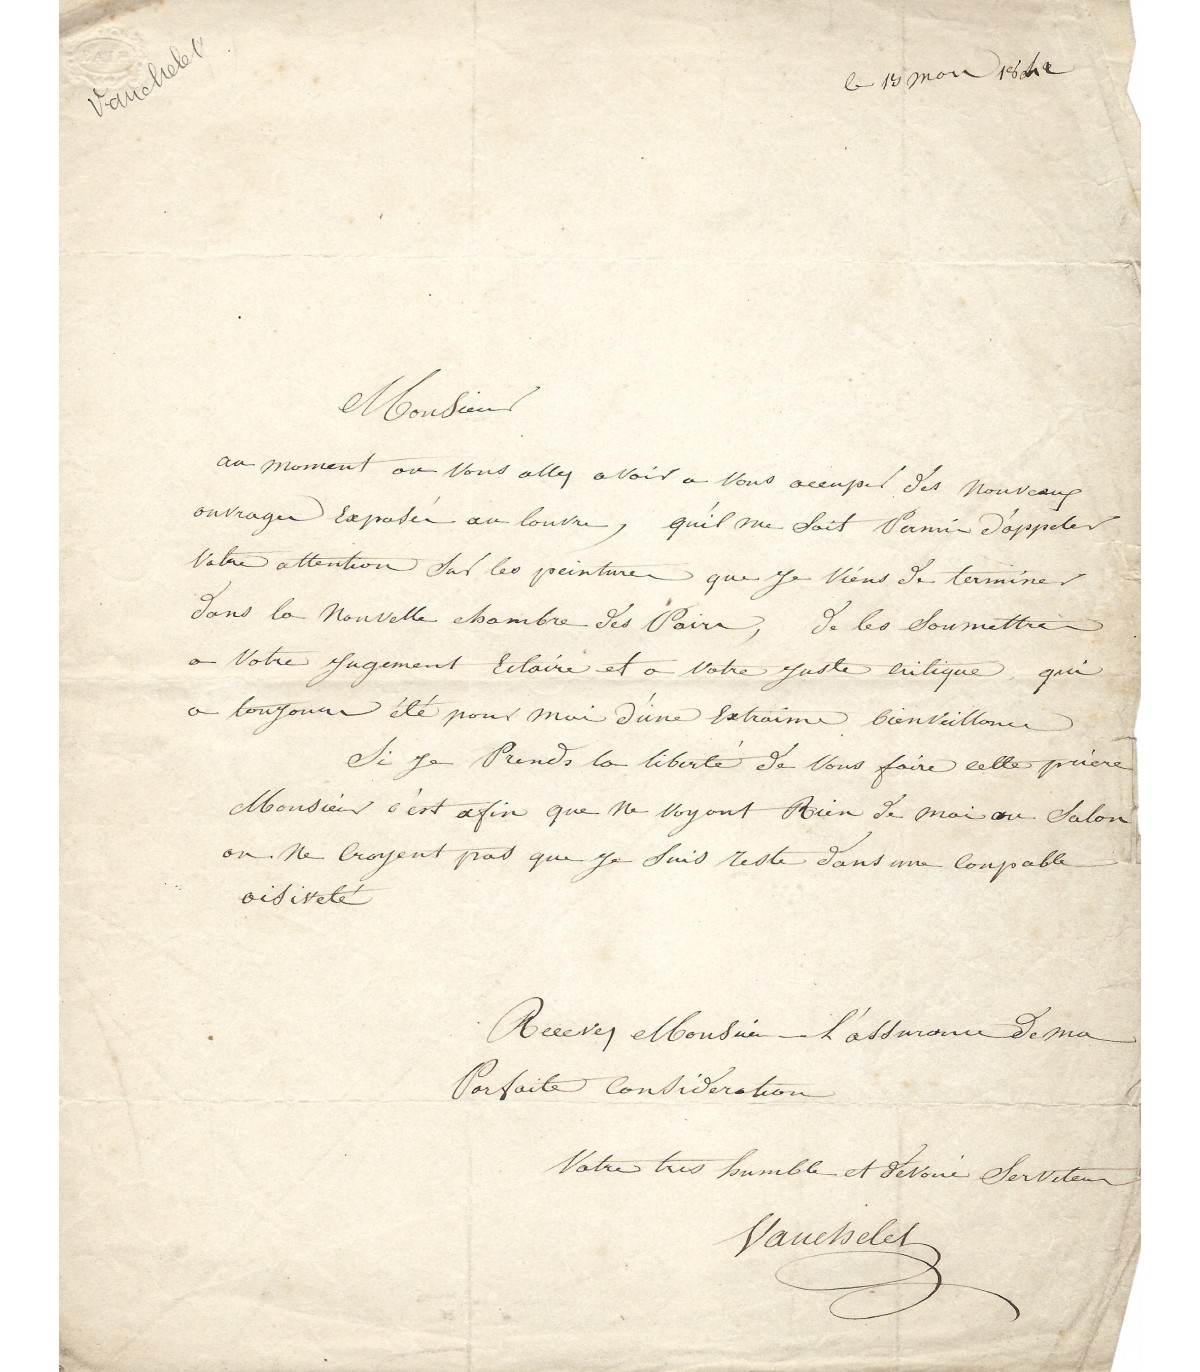 Vauchelet
le 15 mars 1842
Monsieur
au moment ou Vous allez avoir a Vous occuper des nouveaux
ouvrages Exposés au louvre, qu'il me soit Permis d'appeler
Votre attention sur les peintures que je Viens de terminer
dans la Nouvelle chambre des Pairs, de les Soumettre
a Votre jugement Eclaire et a Votre juste critique qui
a toujours été pour moi d'une Extraime bienveillance
Si je Prends la liberté de Vous faire cette prière
Monsieur c'est afin que ne Voyant Rien de moi au Salon
on ne Croyent pas que je suis resté dans une Coupable
oisiveté
Recevez Monsieur l'assurance de ma
Parfaite Consideration
Votre tres humble et devoué Serviteur
Vauchelet